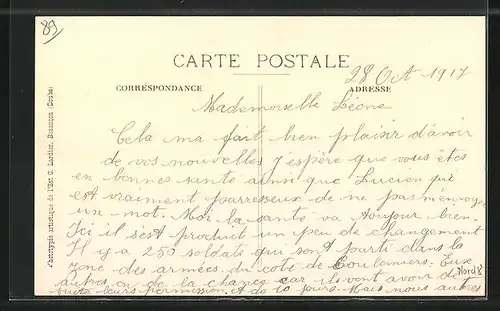 83
CARTE POSTALE
28 Oct 1917
CORRESPONDANCE
ADRESSE
Mademoiselle Léone
Cela ma fait bien plaisir d'avoir
de vos nouvelles y espère que vous êtes
en bonnes sante ainsi que Lucien qui
est vraiment parresseux de ne pas m'envoyer
un mot. Moi la santé va toujour bien.
Ici il s'est produit un peu de changement
Il y a 250 soldats qui sont parti dans la
zone des armées du cote de Coulomiers. Eux
autres on de la chance car ils vont avoir de
suite leurs permission et de 10 jours. Mais nous autres
Phototypie artistique de l'Est C. Lardier, Besançon (Doubs)
Nord8